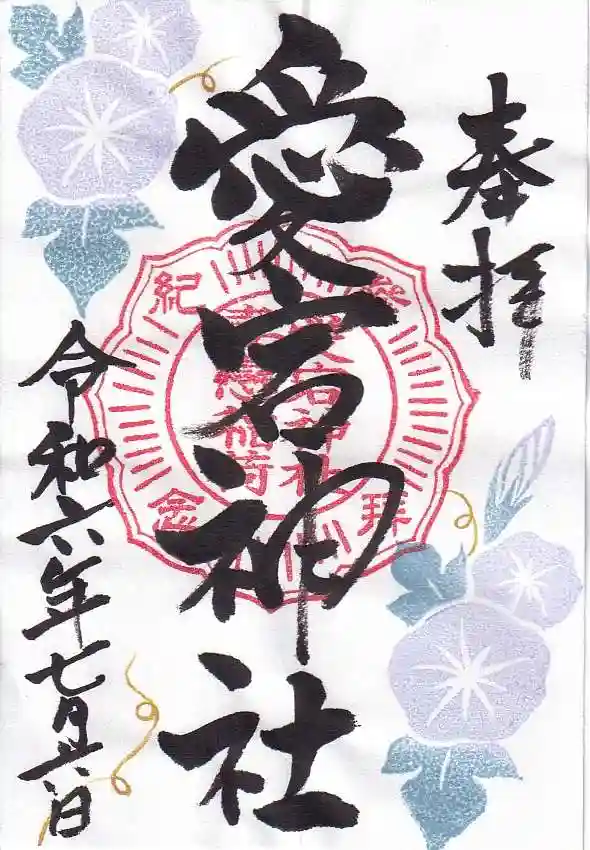 奉拝
愛宕神社
参拝
紀念
令和六年七月六日